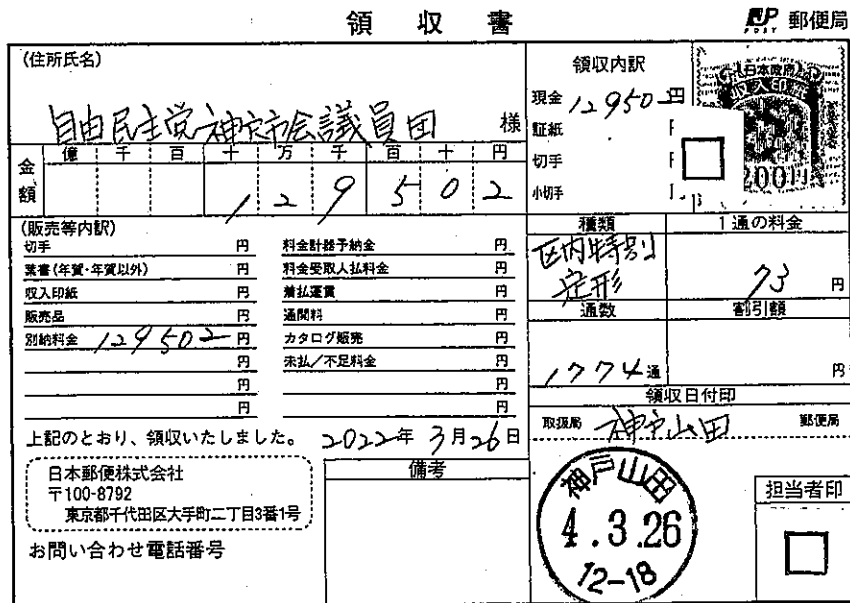 領収書
JP POST 郵便局
(住所氏名)
自由民主党神戸市会議員団 様
金額
億 千 百 十 万 千 百 十 円
1 2 9 5 0 2
領収内訳
現金 129502円
証紙
切手
小切手
日本政府
収入印紙
200円
(販売等内訳)
切手 円
葉書(年賀・年賀以外) 円
収入印紙 円
販売品 円
別納料金 129502円
円
円
円
料金計器予納金 円
料金受取人払料金 円
着払運賃 円
通関料 円
カタログ販売 円
未払/不足料金 円
円
円
種類 1通の料金
区内特別
定形
73 円
通数 割引額
1774通 円
領収日付印
取扱局 神戸山田 郵便局
上記のとおり、領収いたしました。 2022年3月26日
日本郵便株式会社
〒100-8792
東京都千代田区大手町二丁目3番1号
お問い合わせ電話番号
備考
神戸山田
4.3.26
12-18
担当者印